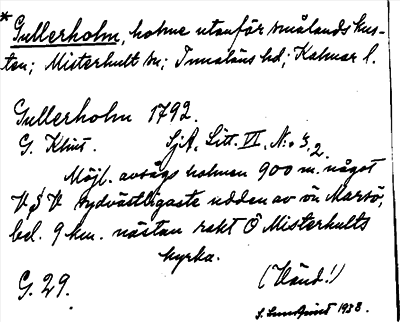 * Gullerholm, holme utanför smålandskus-
ten; Misterhult sn; Tunaläns hd; Kalmar l.
Gullerholm 1792.
G. Klint. SjA. Litt. VI. N:o 3,2.
Möjl. avsågs holmen 900 m. något
V § V sydvästligaste udden av ön Marsö,
bel. 9 km. nästan rakt Ö Misterhults
kyrka.
G. 29. (Vänd!)
S. Lundquist 1938.